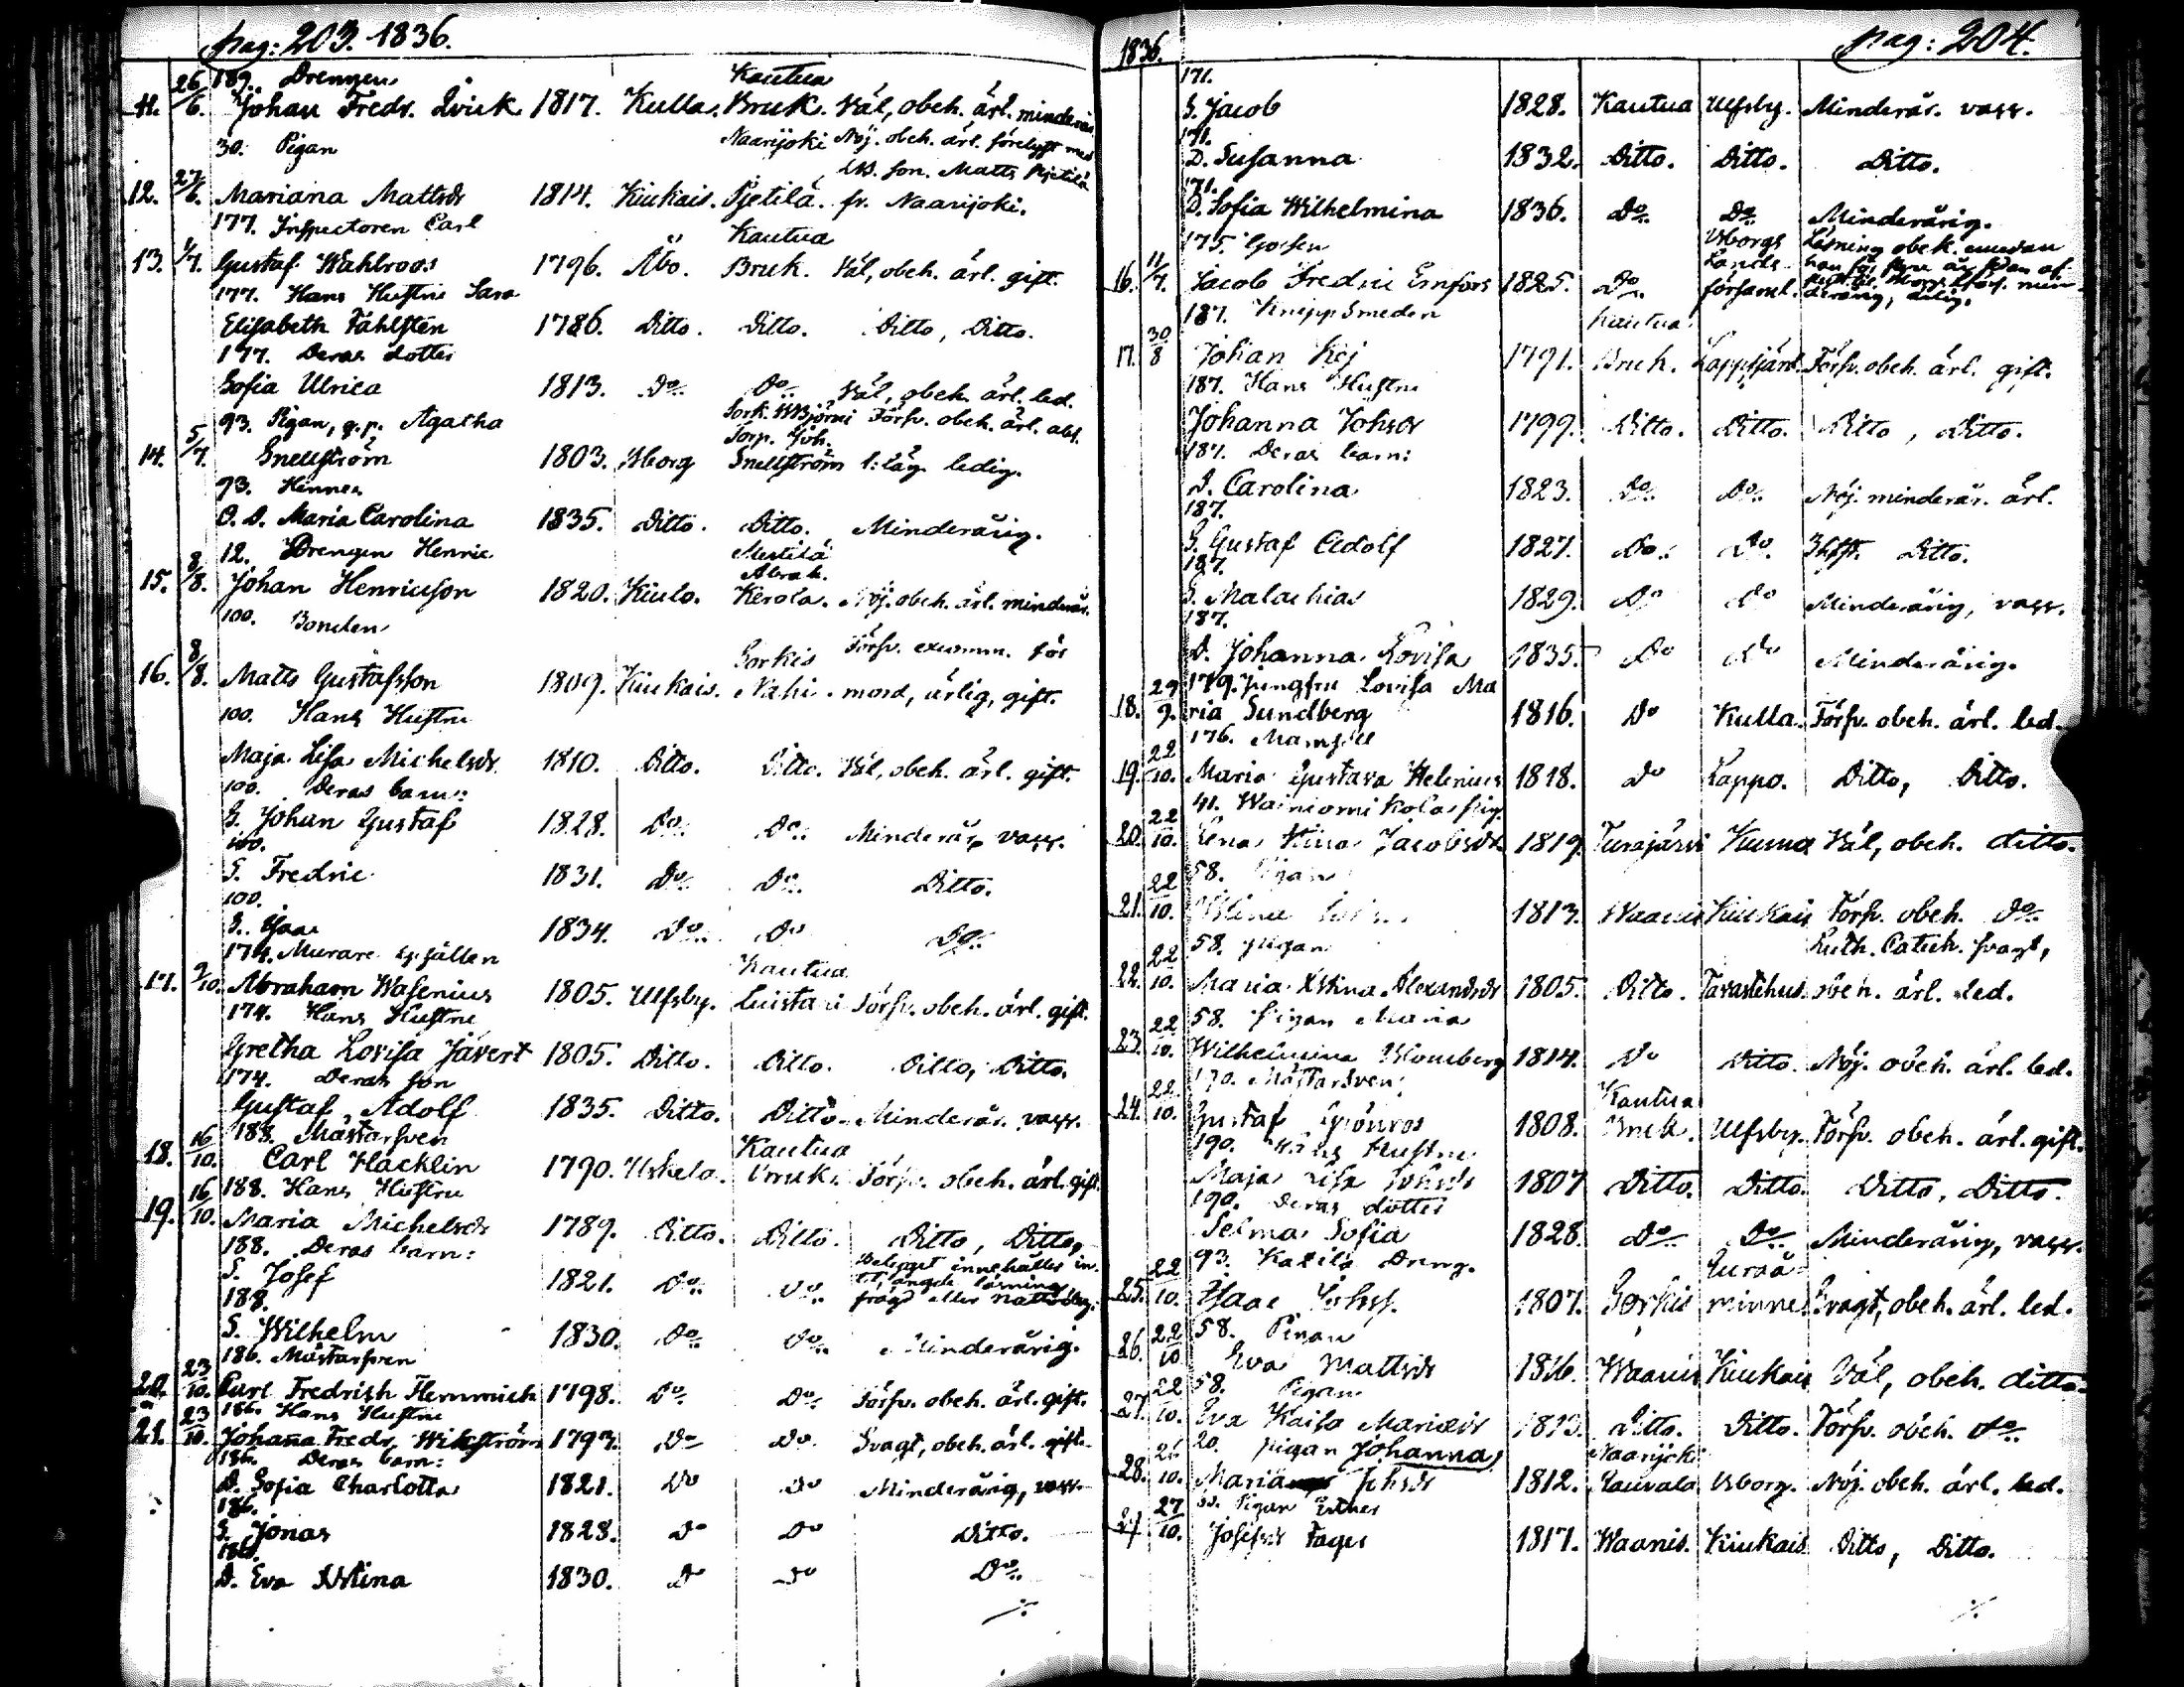 pag: 203. 1836.
26 189. Drengen Kautua
11. /6. Johan Fredr. Qvick 1817. Kulla. Bruk. Väl, obeh. ärl. minderår.
30. Pigan Naarijoki Nöj. obeh. ärl. förelyst med
Matts Pjetilä
12. 27/6. Mariana Mattsdr 1814. Kiukais. Pjetilä. fr. Naarijoki.
177. Inspectoren Carl Kautua
13. 1/7. Gustaf Wahlroos 1796. Åbo. Bruk. Väl, obeh. ärl. gift.
177. Hans Hustru Sara
Elisabeth Fahlsten 1786. Ditto. Ditto. Ditto, Ditto.
177. Deras dotter
Sofia Ulrica 1813. Do Do Väl, obeh. ärl. led.
93. Pigan, q.p. Agatha Försv. obeh. ärl. abs.
Torp. Joh.
14. 5/7. Snellström 1803. Wborg Snellström 1: läg. ledig.
93. Hennes
O. D. Maria Carolina 1835. Ditto. Ditto. Minderårig.
12. Drengen Henric Mestilä
Abrah.
15. 8/8. Johan Henricsson 1820. Kiulo. Kerola. Nöj. obeh. ärl. minderår.
100. Bonden
Sorkis Försv. excomm. för
16. 8/8. Matts Gustafsson 1809. Kiukais. Nahi. mord, ärlig, gift.
100. Hans Hustru
Maja Lisa Michelsdr 1810. Ditto. Ditto. Väl, obeh. ärl. gift.
100. Deras barn:
S. Johan Gustaf 1828. Do Do Minderår. vacc.
100.
S. Fredric 1831. Do Do Ditto.
100.
S. Isaac 1834. Do Do Do
174. Murare gesällen Kautua
17. 9/10. Abraham Wasenius 1805. Ulfsby. Luistari Försv. obeh. ärl. gift.
174. Hans Hustru
Gretha Lovisa Jävert 1805. Ditto. Ditto. Ditto, Ditto.
174. Deras son
Gustaf Adolf 1835. Ditto. Ditto. Minderår. vacc.
16 188. Mästarsven Kautua
18. 10. Carl Hacklin 1790. Uskela. Bruk. Försv. obeh. ärl. gift.
16 188. Hans Hustru
19. 10. Maria Michelsdr 1789. Ditto. Ditto. Ditto, Ditto,
188. Deras barn: Beteget innehåller in-
S. Josef 1821. Do Do tet, angde läsning
188. frägd eller nattvdsg.
S. Wilhelm 1830. Do Do Minderårig.
23 186. Mästarsven
20. 10. Carl Fredrich Hemmich 1798. Do Do Försv. obeh. ärl. gift.
23 186. Hans Hustru
21. 10. Johanna Fredr. Wikström 1793. Do Do Svagt, obeh. ärl. gift.
186. Deras barn:
D. Sofia Charlotta 1821. Do Do Minderårig, vacc.
186.
S. Jonas 1828. Do Do Ditto.
186.
D. Eva Stina 1830. Do Do Do
1836. pag: 204.
171.
S. Jacob 1828. Kautua Ulfsby. Minderår. vacc.
171.
D. Susanna 1832. Ditto. Ditto. Ditto.
171.
D. Sofia Wilhelmina 1836. Do Do Minderårig.
175. Gossen Wborgs Läsning obek. emedan
Lands
16. 11/7. Jacob Fredric Enfors 1825. Do församl. derårig, ledig.
187. Knipp Smeden Kautua
17. 30/8 Johan Kej 1791. Bruk. Lappfjärd. Försv. obeh. ärl. gift.
187. Hans Hustru
Johanna Johsdr 1799. Ditto. Ditto. Ditto, Ditto.
187. Deras barn:
D. Carolina 1823. Do Do Nöj. minderår. ärl.
187.
S. Gustaf Adolf 1827. Do Do Ditto.
187.
S. Malachias 1829. Do Do Minderårig, vacc.
187.
D. Johanna Lovisa 1835. Do Do Minderårig.
29 179. Jungfru Lovisa Ma
18. 9. ria Sundberg 1816. Do Kulla. Försv. obeh. ärl. led.
22 176. Mamsell
19. 10. Maria Gustava Helenius 1818. Do Lappo. Ditto, Ditto.
22 41. Wainiomi Kola pig.
20. 10. Lena Stina Jacobsdr 1819. Turajärvi Kumo Väl, obeh. ditto.
22 58. Pigan
21. 10. 1813. Waanis Kiukais Försv. obeh. Do
22 58. pigan Luth. Catech. svagt,
22. 10. Maria Stina Alexandsdr 1805. Ditto. Tavastehus. obeh. ärl. led.
22 58. Pigan Maria
23. 10. Wilhelmina Blomberg 1814. Do Ditto. Nöj. obeh. ärl. led.
22 190. Mästarsven Kautua
24. 10. Gustaf Grönros 1808. Bruk. Ulfsby. Försv. obeh. ärl. gift.
190. Hans Hustru
Maja Lisa Johsdr 1807 Ditto. Ditto. Ditto, Ditto.
190. Deras dotter
Selma Sofia 1828. Do Do Minderårig, vacc.
22 93. Kaxila Dreng. Euraå
25. 10. Isaac Johss. 1807. Sorkis minne. Svagt, obeh. ärl. led.
22 58. Pigan
26. 10 Eva Mattsdr 1816. Waanis Kiukais Väl, obeh. ditto.
22 58. Pigan
27. 10. Eva Kaisa 1813. Ditto. Ditto. Försv. obeh. Do
20. pigan Johanna Naarijoki
28. 10. Maria Johsdr 1812. Lauvala Wborg. Nöj. obeh. ärl. led.
27 Pigan Esther
29 10. Josefsdr Fager 1817. Waanis. Kiukais Ditto, Ditto.